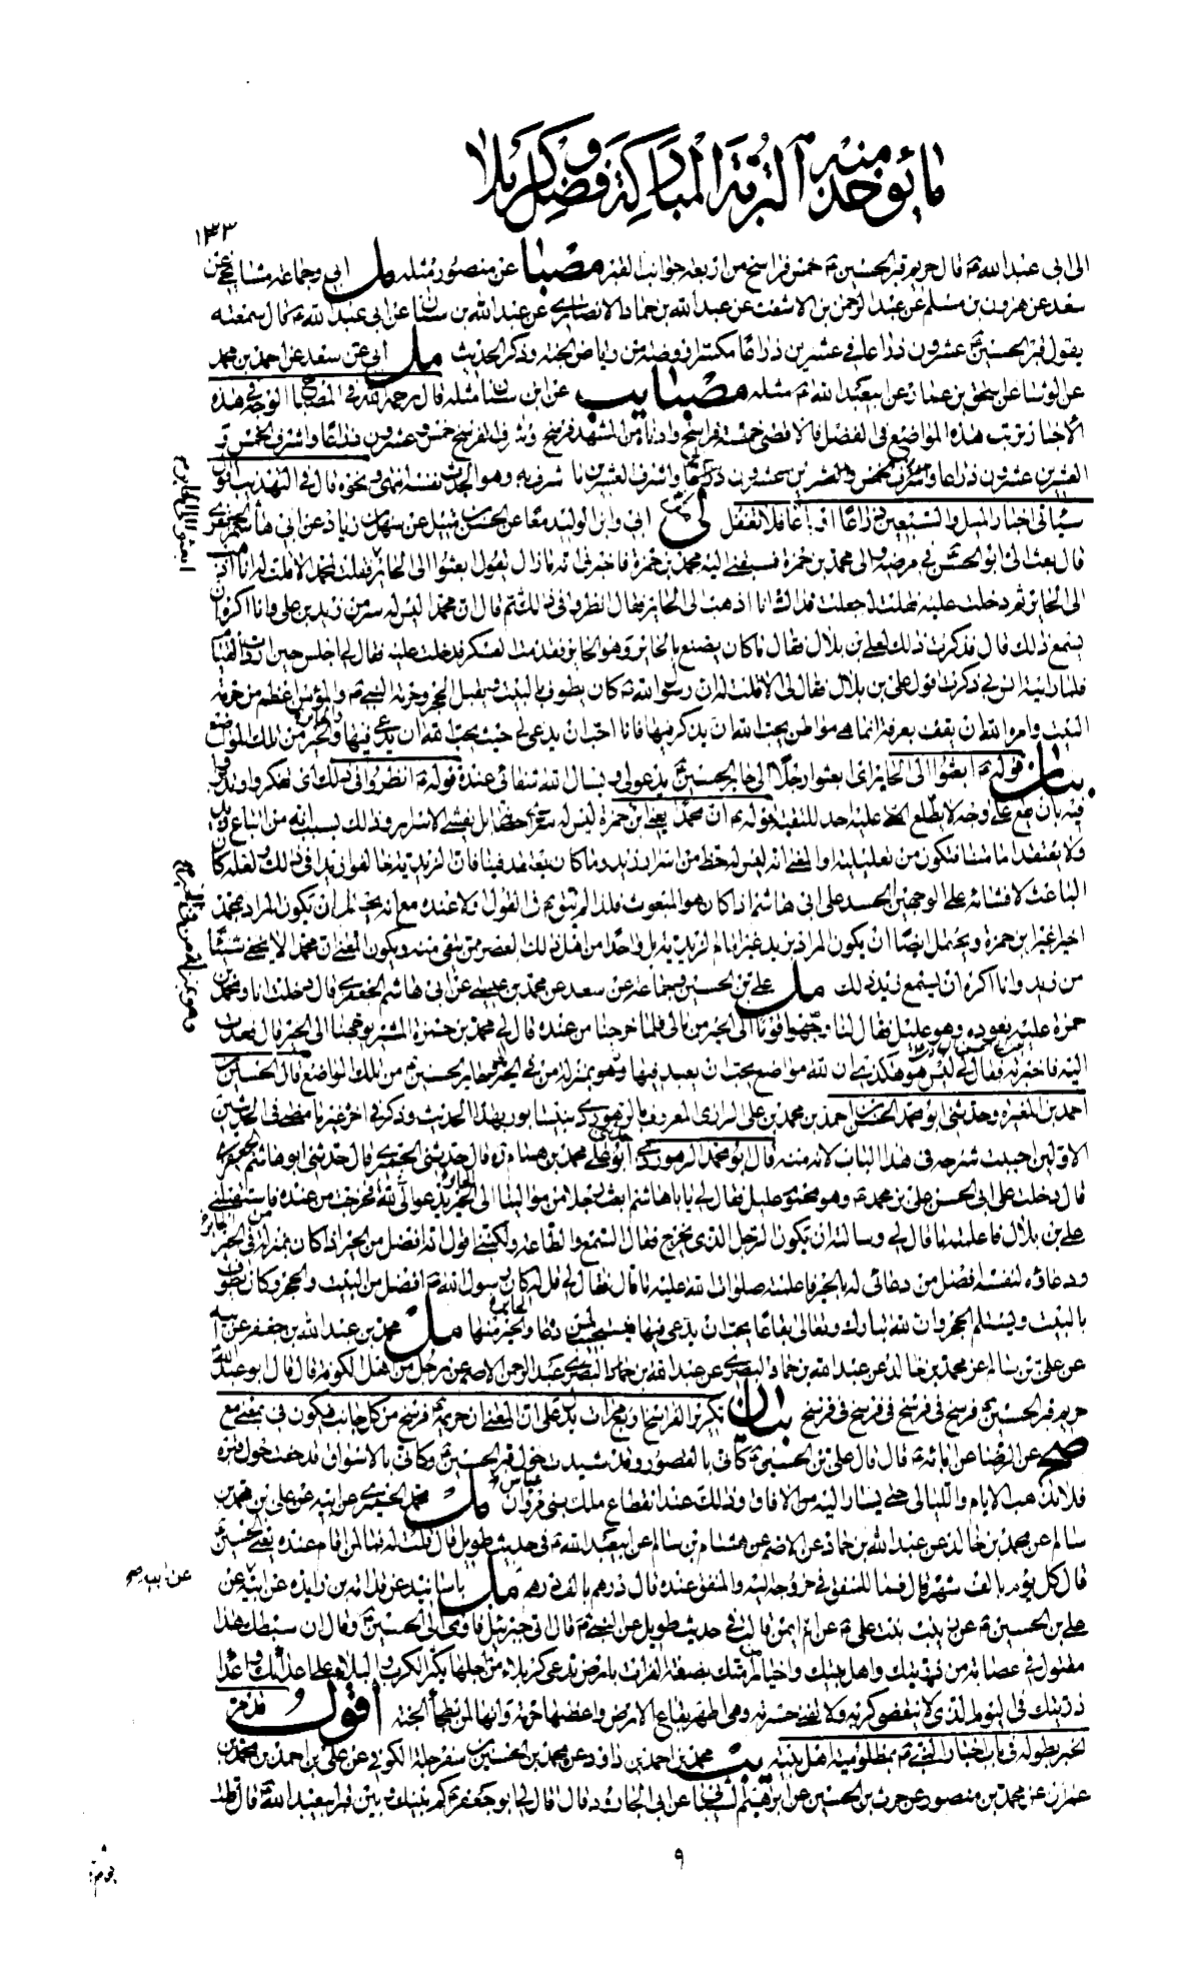 ما يؤخذ منه التربة المباركة وفضل كربلا
١٣٣
الى ابى عبد الله ع قال حريم قبر الحسين ع خمس فراسخ من اربعة جوانب القبر مصبا عن منصور مثله مل ابى وجماعة مشايخى عن
سعد عن هرون بن مسلم عن عبد الرحمن بن الاشعث عن عبد الله بن حماد الانصارى عن عبد الله بن سنان عن ابى عبد الله ع قال سمعته
يقول قبر الحسين ع عشرون ذراعا فى عشرين ذراعا مكسرا روضة من رياض الجنة وذكر الحديث مل ابى عن سعد عن احمد بن محمد
عن الوشا عن اسحق بن عمار عن ابيعبد الله ع مثله مصبا يب عن ابن سنان مثله قال رحمه الله فى المصباح الوجه فى هذه
الاخبار ترتب هذه المواضع فى الفضل فالاقصى خمسة فراسخ وادناه من المشهد فرسخ واشرف الفرسخ خمس وعشرون ذراعا واشرف الخمس و
العشرين عشرون ذراعا واشرف العشرين ما شرف به وهو الجدث نفسه انتهى ونحوه قال فى التهذيب اقول
سيأتى اخبار الميل والسبعين ذراعا او باعا فلا تغفل ابى وابن الوليد معا عن الحسن بن متيل عن سهل بن زياد عن ابى هاشم الجعفرى
قال بعث الى ابو الحسن فى مرضه والى محمد بن حمزة فسبقنى اليه محمد بن حمزة فاخبرنى انه ما زال يقول ابعثوا الى الحائر فقلت لمحمد الا قلت له انا اذهب
الى الحائر ثم دخلت عليه فقلت له جعلت فداك انا اذهب الى الحائر فقال انظروا فى ذلك ثم قال ان محمدا ليس له سر من زيد بن على وانا اكره ان
يسمع ذلك قال فذكرت ذلك لعلى بن بلال فقال ما كان يصنع بالحائر وهو الحائر فقدمت العسكر فدخلت عليه فقال لى اجلس حين اردت القيام
فلما رايته انس بى ذكرت قول على بن بلال فقال لى الا قلت له ان رسول الله ص كان يطوف بالبيت ويقبل الحجر وحرمة النبى ص والمؤمن اعظم من حرمة
البيت وامره الله ان يقف بعرفة انما هى مواطن يحب الله ان يذكر فيها فانا احب ان يدعى لى حيث يحب الله ان يدعى فيها والحير من تلك المواضع
بيان قوله ع ابعثوا الى الحائر اى ابعثوا رجلا الى حائر الحسين ع يدعو لى ويسأل الله شفائى عنده قوله ع انظروا فى ذلك اى تفكروا وتدبروا
فيه بان يقع على وجه لا يطلع عليه احد للتقية قوله ع ان محمدا يعنى ابن حمزة ليس له سر
ولا يعتقد امامتنا فتكون من تعليلية او المعنى انه ليس له حظ من اسرار زيد وما كان يعتقد فينا فان الزيدية خالفوا زيدا فى ذلك ولعله كان
الباعث لافشائه على الوجهين الحسد على ابى هاشم اذ كان هو المبعوث
اخيرا غير ابن حمزة ويحتمل ايضا ان يكون المراد بزيد غير امام الزيدية بل واحدا من اهل ذلك العصر ممن يتقى منه ويكون المعنى ان محمدا لا يخفى شيئا
من زيد وانا اكره ان يسمع زيد ذلك مل على بن الحسين وجماعة عن سعد عن محمد بن عيسى عن ابى هاشم الجعفرى قال دخلت انا ومحمد بن
حمزة عليه نعوده وهو عليل فقال لنا وجهوا قوما الى الحير من مالى فلما خرجنا من عنده قال لى محمد بن حمزة المشير يوجهنا الى الحير
اليه فاخبرته فقال لى ليس هو هكذا ان لله مواضع يحب ان يعبد فيها وحائر الحسين ع من تلك المواضع قال الحسين بن
احمد بن المغيرة وحدثنى ابو محمد الحسن بن احمد بن محمد بن على الرازى المعروف بالوهوردى بنيشابور بهذا الحديث وذكر فى اخره غير ما مضى فى الحديثين
الاولين احببت شرحه فى هذا الباب لانه منه قال ابو محمد الوهوردى حدثنى ابو على محمد بن همام ره قال حدثنى الحميرى قال حدثنى ابو هاشم الجعفرى
قال دخلت على ابى الحسن على بن محمد ع وهو محموم عليل فقال لى يا با هاشم ابعث رجلا من موالينا الى الحير يدعو الله لى فخرجت من عنده فاستقبلنى
على بن بلال فاعلمته ما قال لى وسألته ان يكون الرجل الذى يخرج فقال السمع والطاعة ولكننى اقول انه افضل من الحير اذ كان بمنزلة من فى الحير
ودعاؤه لنفسه افضل من دعائى له بالحير فاعلمته صلوات الله عليه ما قال فقال لى قل له كان رسول الله ص افضل من البيت والحجر وكان يطوف
بالبيت ويستلم الحجر وان لله تبارك وتعالى بقاعا يحب ان يدعى فيها فيستجيب لمن دعاه والحير منها مل محمد بن عبد الله بن جعفر عن ابيه
عن على بن سالم عن محمد بن خالد عن عبد الله بن حماد البصرى عن عبد الله بن عبد الرحمن الاصم عن رجل من اهل الكوفة قال قال ابو عبد الله
حريم قبر الحسين ع فرسخ فى فرسخ فى فرسخ فى فرسخ بيان تكرير الفراسخ اربع مرات يدل على ان المعنى ان حريمه ع فرسخ من كل جانب فيكون فى بمعنى مع
صح عن الرضا عن ابائه ع قال قال على بن الحسين ع كانى بالقصور وقد شيدت حول قبر الحسين ع وكانى بالاسواق قد حفت حول قبره
فلا تذهب الايام والليالى حتى يسار اليه من الافاق وذلك عند انقطاع ملك بنى مروان مل محمد الحميرى عن ابيه عن على بن محمد بن
سالم عن محمد بن خالد عن عبد الله بن حماد عن الاصم عن هشام بن سالم عن ابيعبد الله ع فى حديث طويل قال قلت له فما لمن اقام عنده يعنى الحسين ع
قال كل يوم بالف شهر قال فما للمنفق فى خروجه اليه والمنفق عنده قال درهم بالف درهم مل باسانيد عن قدامة بن زايدة عن ابيه عن
على بن الحسين ع عن زينب بنت على ع عن ام ايمن قالت فى حديث طويل عن النبى ص قال اتى جبرئيل فاومى الى الحسين ع وقال ان سبطك هذا
مقتول فى عصابة من ذريتك واهل بيتك واخيار من امتك بضفة الفرات بارض تدعى كربلاء من اجلها يكثر الكرب والبلاء على اعدائك واعداء
ذريتك فى اليوم الذى لا ينقضى كربه ولا تفنى حسرته وهى اطهر بقاع الارض واعظمها حرمة وانها لمن بطحاء الجنة اقول قد مر
الخبر بطوله فى باب اخبار النبى ص بمظلومية اهل بيته يب محمد بن احمد بن داود عن محمد بن الحسين بن سفرجلة الكوفى عن على بن احمد بن محمد بن
عمران عن محمد بن منصور عن حرث بن الحسين عن ابرهيم الشيبانى عن ابى الجارود قال قال لى ابو جعفر ع كم بينك وبين قبر ابيعبد الله ع قال قلت
عن ابيه صح
٩
يوم